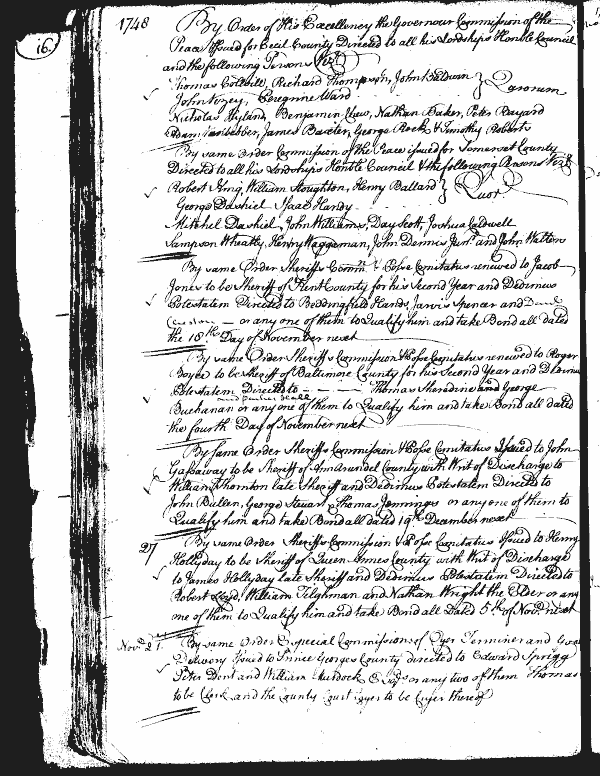 16.
1748
By Order of His Excellency the Governour Commission of the
Peace Issued for Cecil County Directed to all his Lordships Honble Council
and the following Persons Vizt
Thomas Colvill, Richard Thompson, John Baldwin } Quorum
John Veazey, Peregrine Ward
Nicholas Hyland, Benjamin Chew, Nathan Baker, Peter Bayard
Adam Vanbebber, James Baxter, George Rock & Timothy Roberts
By same Order Commission of the Peace issued for Somerset County
Directed to all his Lordships Honble Council & the following Persons Vizt
Robert King, William Stoughton, Henry Ballard } Quor
George Dashiel Isaac Handy
Mitchel Dashiel, John Williams, Day Scott, Joshua Caldwell
Sampson Wheatly, Henry Waggaman, John Dennis Junr. and John Walton
By same Order Sheriffs Commn & Posse Comitatus renewed to Jacob
Jones to be Sheriff of Kent County for his Second Year and Dedimus
Potestatem Directed to Beddingfield Hands, Jarvis Spencer and
or any one of them to Qualify him and take Bond all dated
the 18th Day of November next
By same Order Sheriffs Commission & Posse Comitatus renewed to Roger
Boyce to be Sheriff of Baltimore County for his Second Year and Dedimus
Potestatem Directed to - - - - Thomas Sheredine and George
Buchanan or any one of them to Qualify him and take Bond all dated
the fourth Day of November next
By same Order Sheriffs Commission & Posse Comitatus Issued to John
Gassaway to be Sheriff of Ann Arundel County with Writ of Discharge to
William Thornton late Sheriff and Dedimus Potestatem Directed to
John Bullen, George Steuart Thomas Jennings or any one of them to
Qualify him and take Bond all dated 19th December next
27
By same Order Sheriffs Commission & Posse Comitatus Issued to Henry
Hollyday to be Sheriff of Queen Annes County with Writ of Discharge
to James Hollyday late Sheriff and Dedimus Potestatem Directed to
Robert Lloyd, William Tilghman and Nathan Wright the Elder or any
one of them to Qualify him and take Bond all Dated 5th of Novr. next
Novr. 21.
By same Order Especial Commissions of Oyer Terminer and Goal
Delivery Issued to Prince Georges County directed to Edward Sprigg
Peter Dent and William Murdock Esqrs or any two of them Thomas
to be Clerk and the County Court Cryer to be Cryer thereof